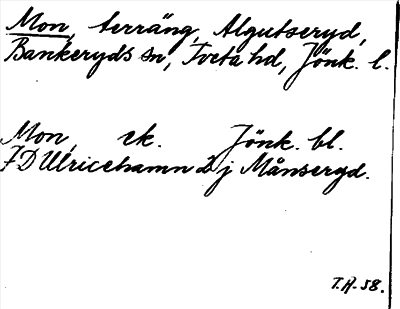 Mon, terräng, Algutseryd,
Bankeryds sn, Tveta hd, Jönk. l.
Mon, ek. Jönk. bl.
7D Ulricehamn 2 j Månseryd.
T.A. 58.